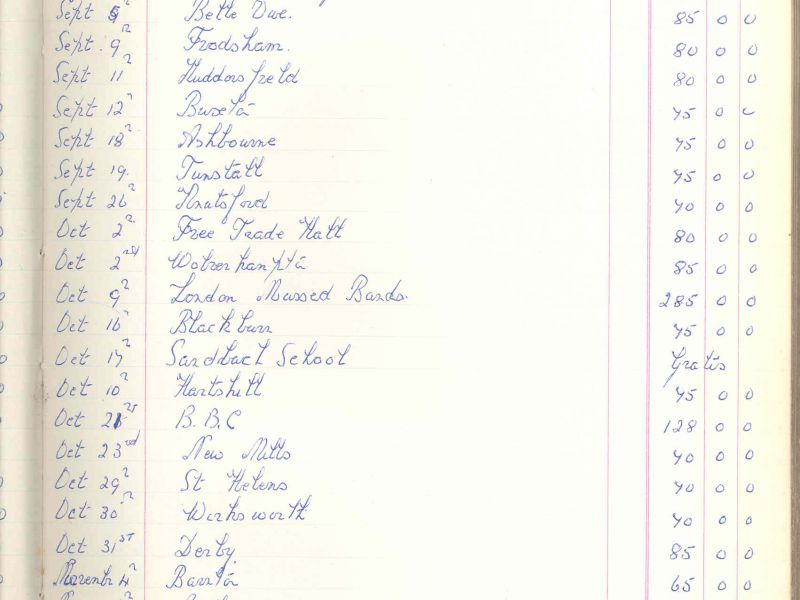 Sept 5 Belle Vue. 85 0 0
Sept. 9 Frodsham. 80 0 0
Sept 11 Huddersfield 80 0 0
Sept 12 Buxton 75 0 0
Sept 18 Ashbourne 75 0 0
Sept 19. Tunstall 75 0 0
Sept 26 Knutsford 70 0 0
Oct 2 Free Trade Hall 80 0 0
Oct 2nd Wolverhampton 85 0 0
Oct 9 London Massed Bands. 285 0 0
Oct 16 Blackburn 75 0 0
Oct 17 Sandbach School Gratis
Oct 10 Hartshill 75 0 0
Oct 21st B.B.C 128 0 0
Oct 23rd New Mills 70 0 0
Oct 29 St Helens 70 0 0
Oct 30 Wirksworth 70 0 0
Oct 31st Derby 85 0 0
Novembr 4 65 0 0